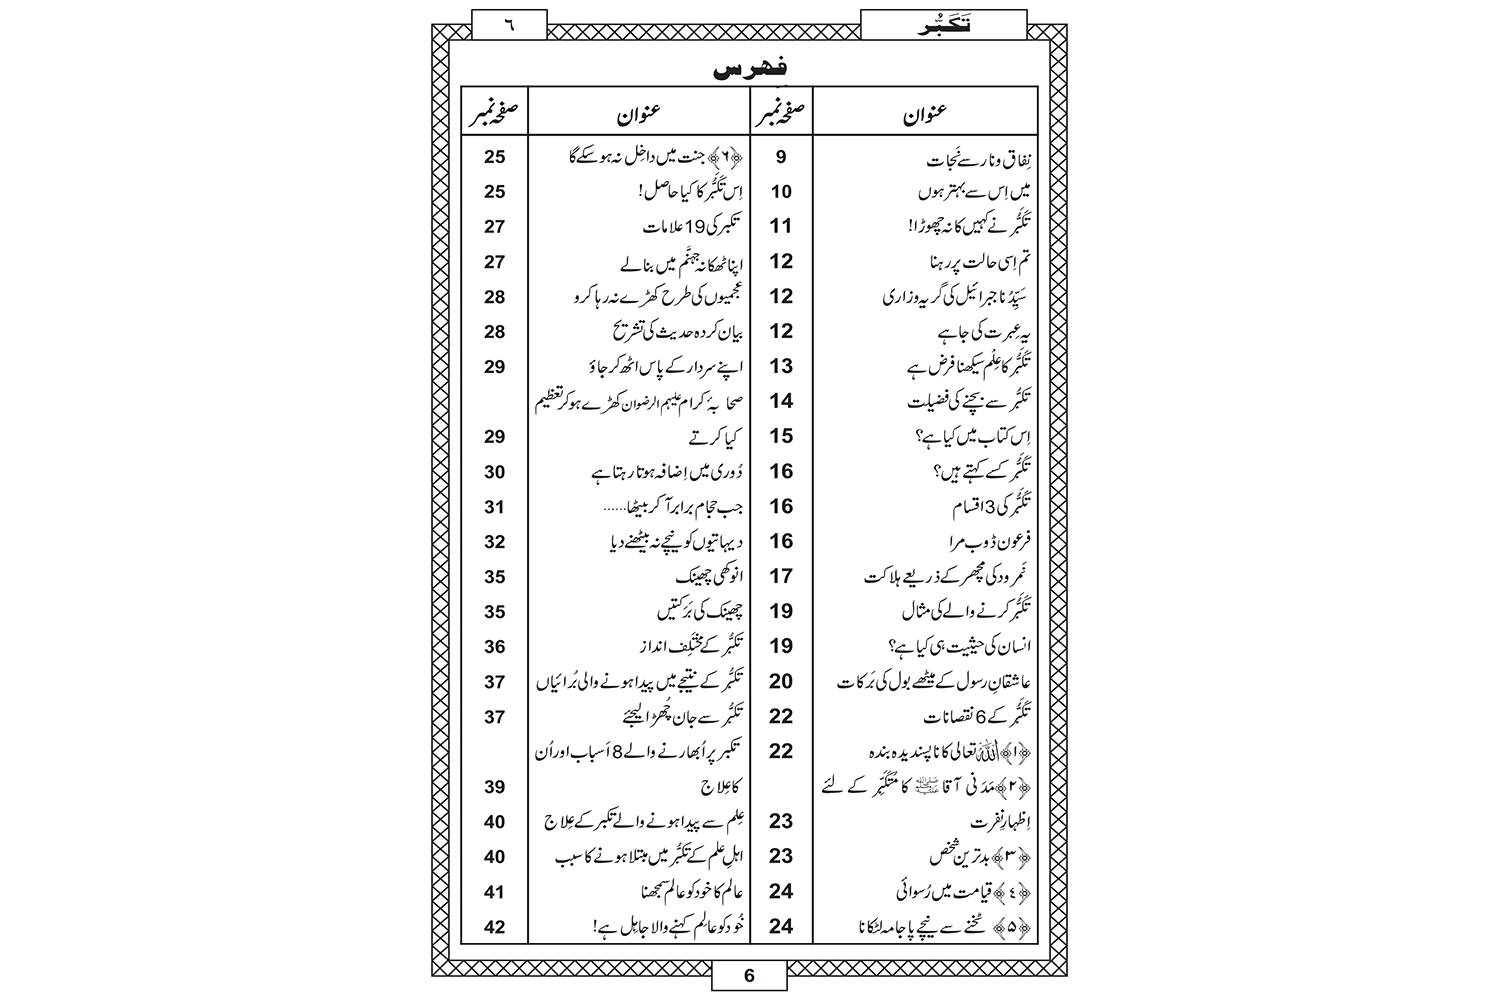 تکبُّر
٦
فہرس
عنوان صفحہ نمبر
نِفاق ونار سے نَجات 9
میں اِس سے بہتر ہوں 10
تَکَبُّر نے کہیں کا نہ چھوڑا! 11
تم اِسی حالت پر رہنا 12
سَیِّدُنا جبرائیل کی گریہ وزاری 12
یہ عِبرت کی جا ہے 12
تَکَبُّر کا عِلْم سیکھنا فرض ہے 13
تکبُّر سے بچنے کی فضیلت 14
اِس کتاب میں کیا ہے؟ 15
تَکَبُّر کسے کہتے ہیں؟ 16
تَکَبُّر کی 3 اقسام 16
فرعون ڈوب مرا 16
نَمرود کی مچھر کے ذریعے ہلاکت 17
تَکَبُّر کرنے والے کی مثال 19
انسان کی حیثیت ہی کیا ہے؟ 19
عاشقانِ رسول کے میٹھے بول کی بَرکات 20
تَکَبُّر کے 6 نقصانات 22
﴿۱﴾ اللہ تعالی کا ناپسندیدہ بندہ 22
﴿۲﴾ مَدَنی آقا ﷺ کا مُتَکَبِّر کے لئے
اِظہارِ نفرت 23
﴿۳﴾ بدترین شخص 23
﴿٤﴾ قیامت میں رُسوائی 24
﴿۵﴾ ٹخنے سے نیچے پاجامہ لٹکانا 24
عنوان صفحہ نمبر
﴿٦﴾ جنت میں داخِل نہ ہو سکے گا 25
اِس تَکَبُّر کا کیا حاصل! 25
تکبر کی 19 علامات 27
اپنا ٹھکانہ جہنَّم میں بنالے 27
عجمیوں کی طرح کھڑے نہ رہا کرو 28
بیان کردہ حدیث کی تشریح 28
اپنے سردار کے پاس اٹھ کر جاؤ 29
صحابۂ کرام علیہم الرضوان کھڑے ہو کر تعظیم
کیا کرتے 29
دُوری میں اِضافہ ہوتا رہتا ہے 30
جب حجام برابر آ کر بیٹھا...... 31
دیہاتیوں کو نیچے نہ بیٹھنے دیا 32
انوکھی چھینک 35
چھینک کی بَرَکتیں 35
تکبُّر کے مختَلِف انداز 36
تکبُّر کے نتیجے میں پیدا ہونے والی بُرائیاں 37
تکبُّر سے جان چُھڑا لیجئے 37
تکبر پر اُبھارنے والے 8 اَسباب اور اُن
کا عِلاج 39
عِلم سے پیدا ہونے والے تکبر کے عِلاج 40
اہلِ علم کے تَکبُّر میں مبتلا ہونے کا سبب 40
عالم کا خود کو عالم سمجھنا 41
خُود کو عالِم کہنے والا جاہِل ہے! 42
6